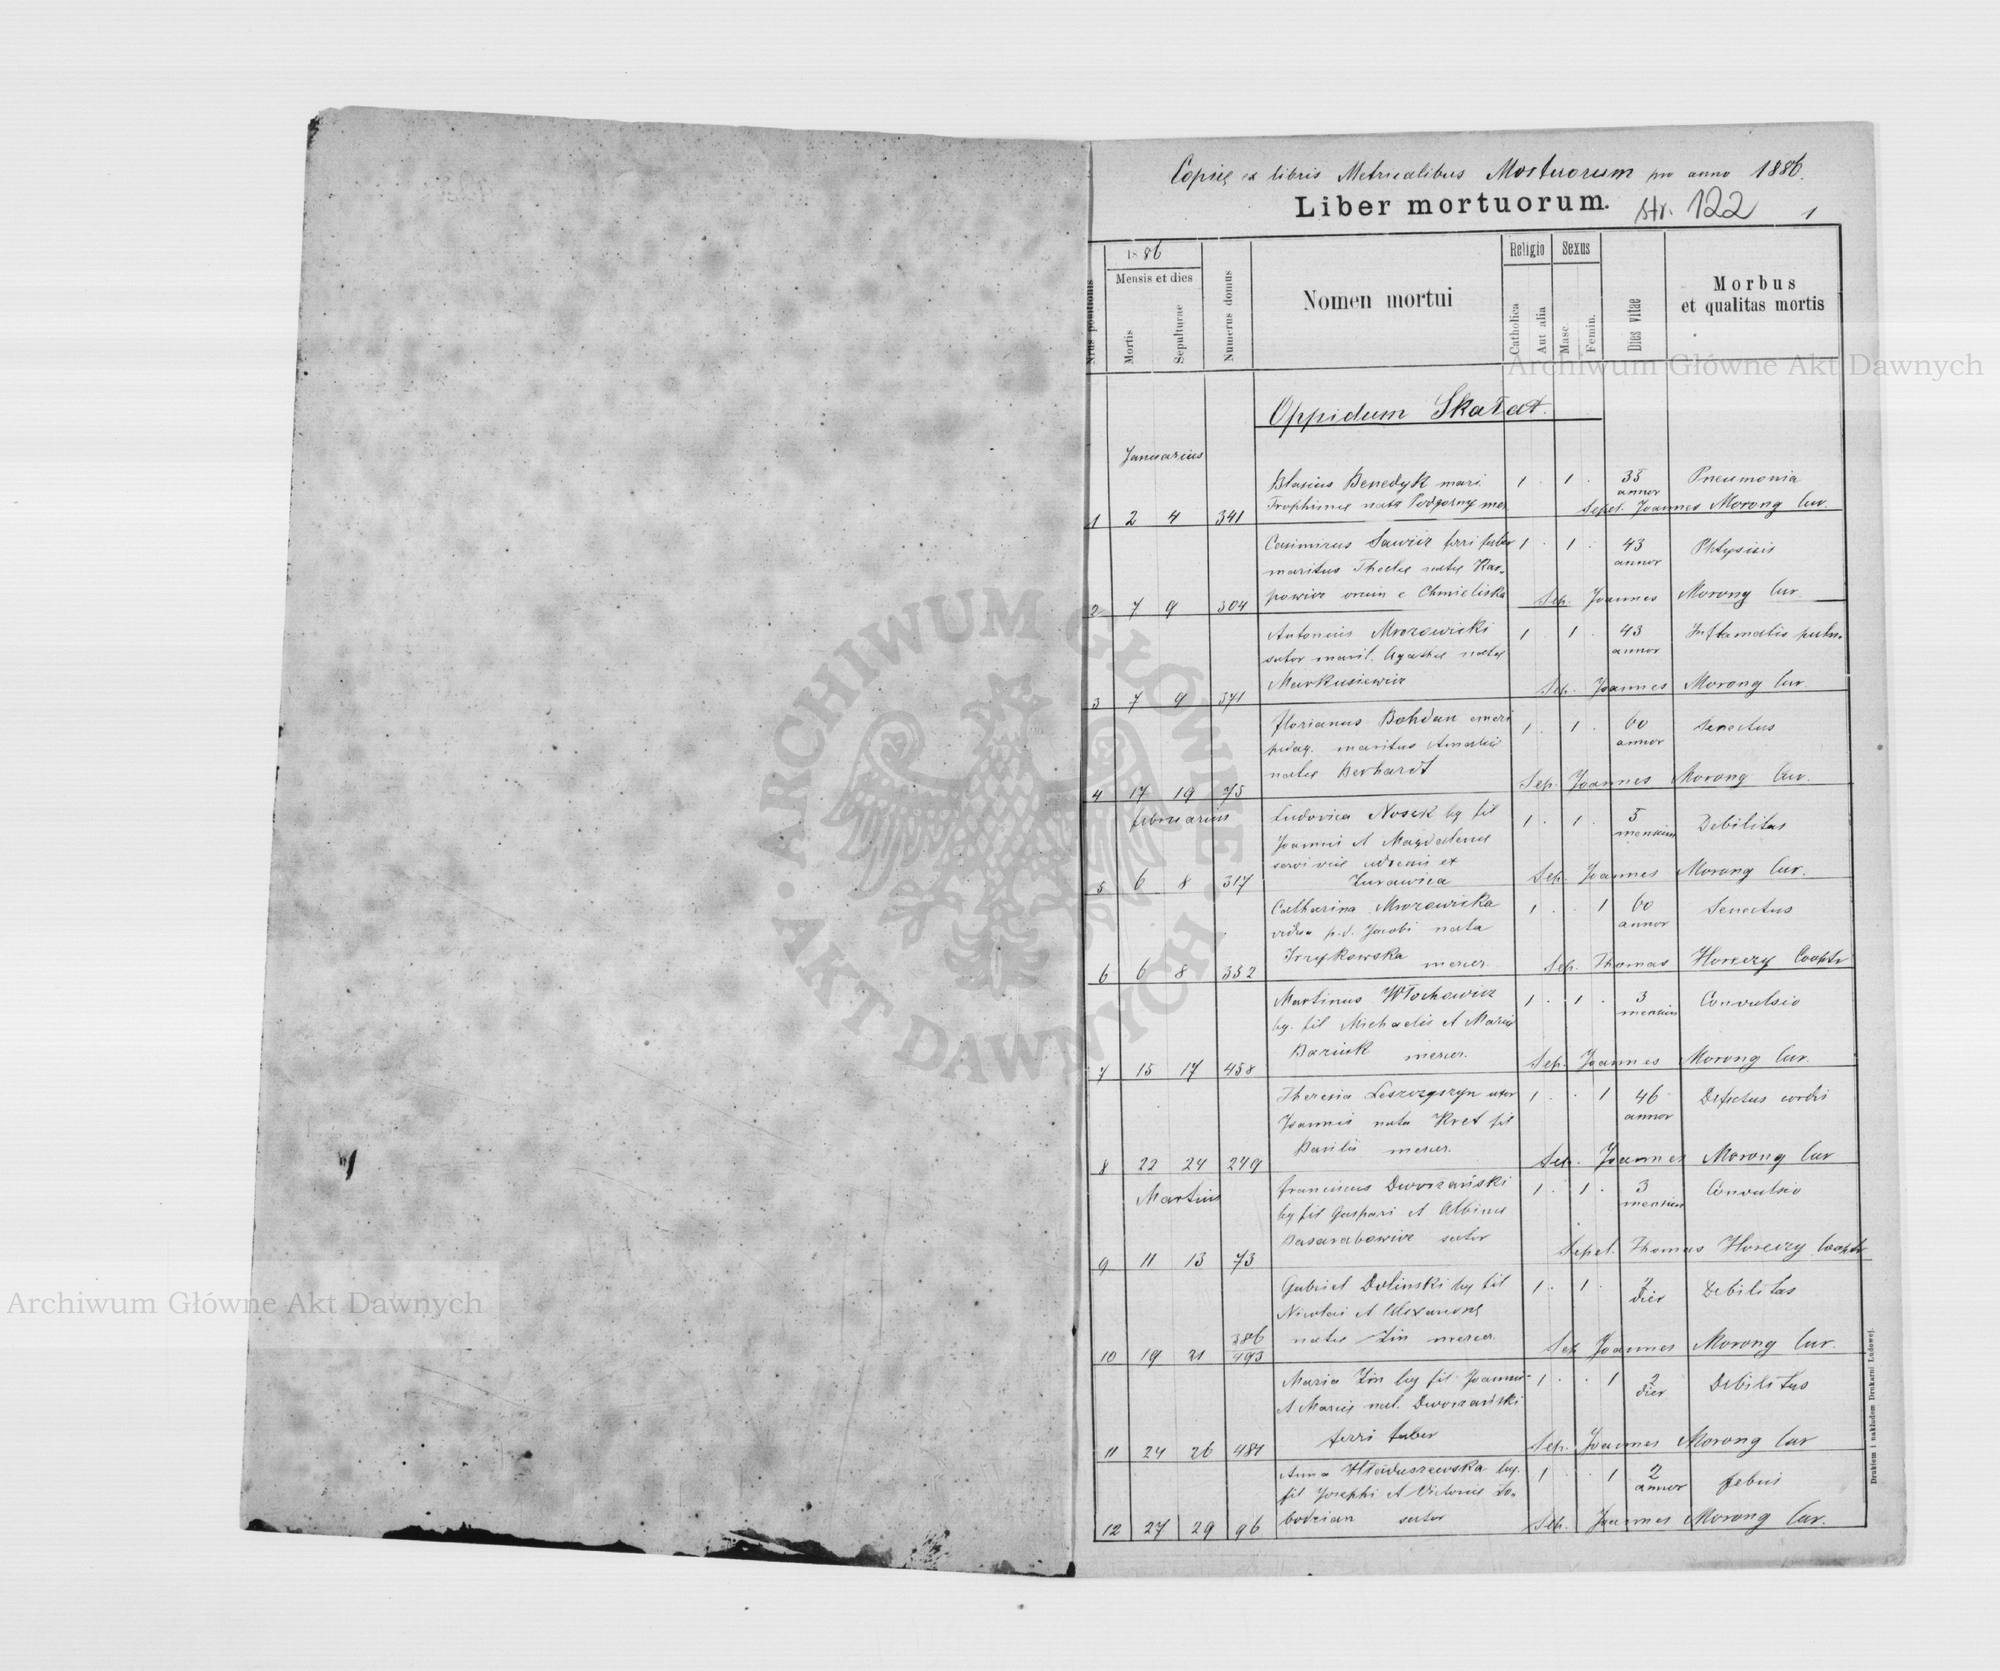 Copię ex libris Metricalibus Mortuorum pro anno 1886.
Liber mortuorum. str. 122 1
Nrus positionis
1886
Mensis et dies
Mortis
Sepulturae
Numerus domus
Nomen mortui
Religio
Catholica
Aut alia
Sexus
Masc.
Femin.
Dies vitae
Morbus
et qualitas mortis
Oppidum Skałat.
Januarius
Blasius Benedyk mari 1 . 1 . 35 Pneumonia
annor
nata Podgorny mer. Sepel. Joannes Morong Cur.
1 2 4 341
Casimirus Sawicz ferri faber 1 . 1 . 43 Phtysisis
annor
maritus Theclae natae Kar-
powicz e Chmieliska Sep. Joannes Morong Cur.
2 7 9 304
Antonius Mrozowicki 1 . 1 . 43
annor
sutor marit. Agathae natae
Markusiewicz Sep. Joannes Morong Cur.
3 7 9 371
Florianus Bohdan emeri 1 . 1 . 60 Senectus
annor
maritus Amaliae
natae Berhardt Sep. Joannes Morong Cur.
4 17 19 75
Februarius
Ludovica Nosek leg fil 1 . 1 . 5 Debilitas
mensium
Joannis et Magdalenae
ex
Zurawica Sep. Joannes Morong Cur.
5 6 8 317
Catharina Mrozowicka 1 . . 1 60 Senectus
annor
vidua p.d. Jacobi nata
mercr. Sep. Thomas Horeczy Cooptr
6 6 8 352
Martinus Włochowicz 1 . 1 . 3 Convulsio
mensium
leg. fil Michaelis et Mariae
Baziuk mercr. Sep. Joannes Morong Cur.
7 15 17 458
Theresia Leszczyszyn uxor 1 . . 1 46 Defectus cordis
annor
Joannis nata Kret fil
Basilii mercr. Sep. Joannes Morong Cur
8 22 24 249
Martius
Franciscus Dworzański 1 . 1 . 3 Convulsio
mensium
leg fil Gaspari et Albinae
Basarabowicz sutor Sepel. Thomas Horeczy Cooptr
9 11 13 73
Gabriel Dolinski leg fil 1 . 1 . 7 Debilitas
dier
Nicolai et Alexandrae
natae Zin mercr. Sep Joannes Morong Cur.
10 19 21 386
493
Maria Zin leg fil Joannis 1 . . 1 2 Debilitas
dier
et Mariae nat. Dworzański
ferri faber Sep. Joannes Morong Cur
11 24 26 481
Anna Hładuszewska leg. 1 . . 1 2 Febris
annor
fil Josephi et Victoriae Zo-
bodzian sutor Sep. Joannes Morong Cur.
12 27 29 96
Drukiem i nakładem Drukarni Ludowej.
Archiwum Główne Akt Dawnych
Archiwum Główne Akt Dawnych
ARCHIWUM GŁÓWNE
AKT DAWNYCH